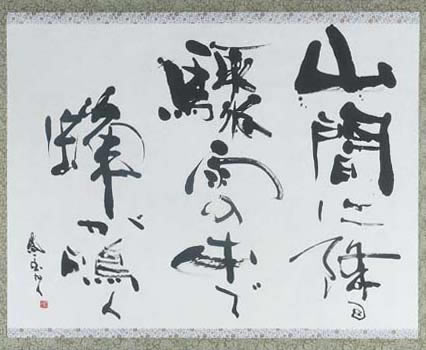 山間に降る
驟雨の中で
蝉が鳴く